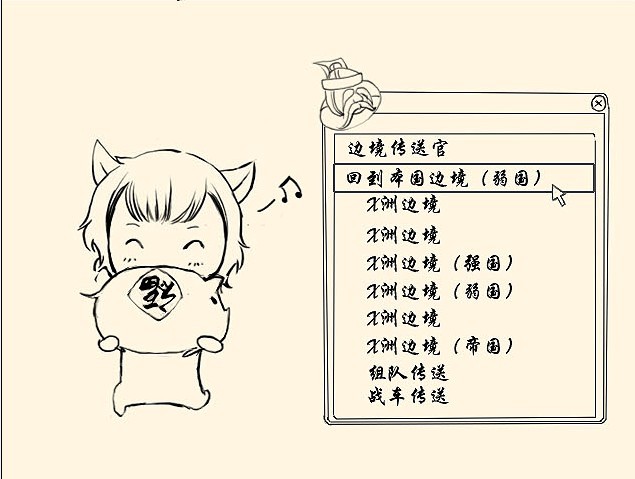 福
边境传送官
回到本国边境（弱国）
X洲边境
X洲边境
X洲边境（强国）
X洲边境（弱国）
X洲边境
X洲边境（帝国）
组队传送
战车传送